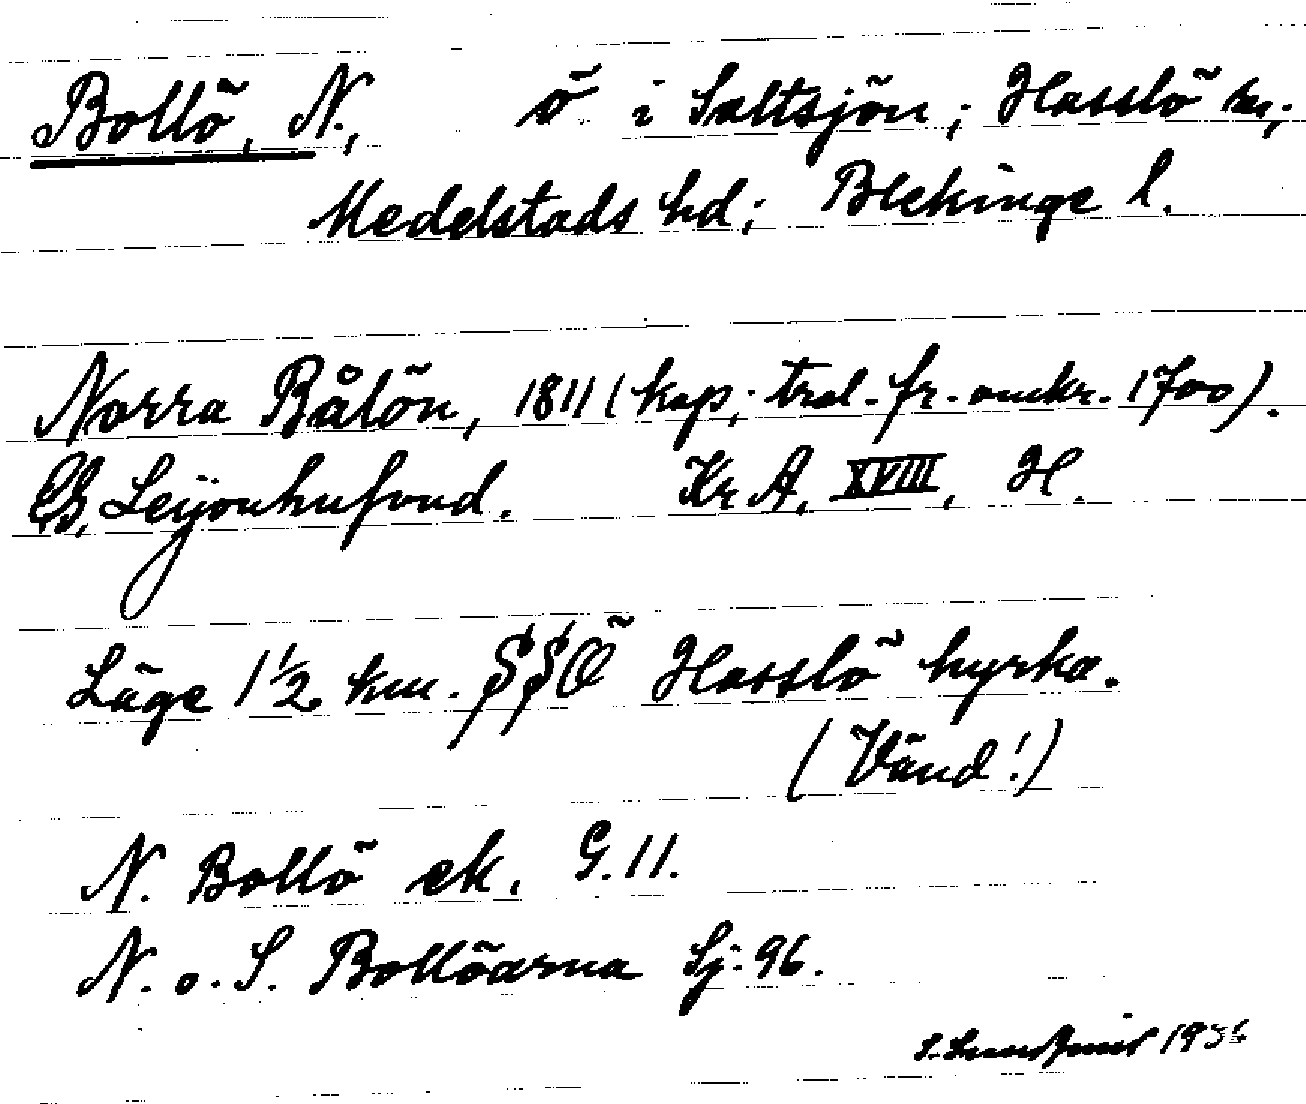 Bollö, N., ö i Saltsjön; Hasslö sn;
Medelstads hd; Blekinge l.
Norra Bålön, 1811 (kop; tral. fr. omkr. 1700).
CG. Leijonhufvud. Kr A, XVIII, H.
Läge 1½ km. SSÖ Hasslö kyrka.
(Vänd!)
N. Bollö ek. G.11.
N. o. S. Bollöarna Sj. 96.